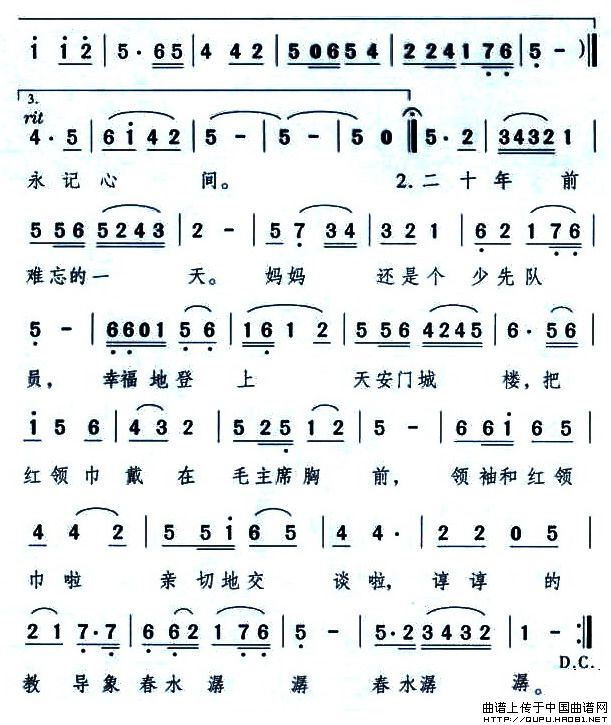 i i 2 | 5 · 6 5 | 4 4 2 | 5 0 6 5 4 | 2 2 4 1 7 6 | 5 - ) |
3.
rit
4 · 5 | 6 i 4 2 | 5 - | 5 - | 5 0 | 5 · 2 | 3 4 3 2 1 |
永 记 心 间。 2. 二 十 年 前
5 5 6 5 2 4 3 | 2 - | 5 7 3 4 | 3 2 1 | 6 2 1 7 6 |
难忘的一 天。 妈妈 还是个 少先队
5 - | 6 6 0 1 5 6 | 1 6 1 2 | 5 5 6 4 2 4 5 | 6 · 5 6 |
员, 幸福地登 上 天安门城 楼,把
i 5 6 | 4 3 2 | 5 2 5 1 2 | 5 - | 6 6 i 6 5 |
红领巾 戴 在 毛主席胸 前, 领袖和红领
4 4 2 | 5 5 i 6 5 | 4 4 · | 2 2 0 5 |
巾 啦 亲切地交 谈啦, 谆谆的
2 1 7 · 7 | 6 6 2 1 7 6 | 5 - | 5 · 2 3 4 3 2 | 1 - :|
D.C.
教 导象 春水 潺 潺 春水潺 潺。
曲谱上传于中国曲谱网
HTTP://QUPU.HAO81.NET